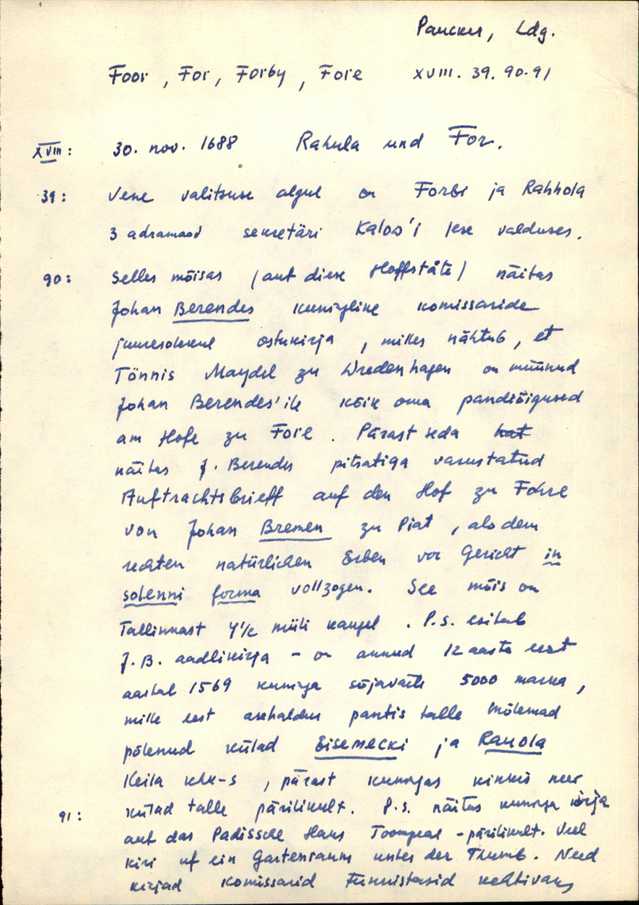 Paucker, Ldg.
Foor, For, Forby, Fore XVIII. 39. 90-91
XVIII: 30. nov. 1688 Rahula und For.
39: Vene valitsuse algul on Forbi ja Rahhola
3 adramaad sekretäri Kaloo'i lese valduses.
90: Selles mõisas (auf diese Hoffstäte) näitas
Johan Berendes kuningline komissaride
juuresolekul ostukirja, milles nähtub, et
Tönnis Maydel zu Wredenhagen on müünud
Johan Berendes'ile kõik oma pandiõigused
am Hofe zu Fore. Pärast seda hat
näitas J. Berendes pitsatiga varustatud
Auftrachtsbrieff auf den Hof zu Forre
von Johan Bremen zu Piat, als dem
rechten natürlichen Erben vor Gericht in
solenni forma vollzogen. See mõis on
Tallinnast 4 1/2 miili kaugel. P.s. esitab
J.B. aadlikirja - on annud 12 aasta eest
aastal 1569 kuninga sõjaväele 5000 marka,
mille eest asehaldur pantis talle mõlemad
põlenud külad Sisemecki ja Rauola
Keila khk-s, pärast kuningas kinkis need
91: külad talle päriliselt. P.s. näitas kuninga kirja
auf das Padissche Haus Toompeal - päriliselt. Veel
kiri uf ein Gartenraum unter der Thumb. Need
kirjad komissarid tunnistasid kehtivaks